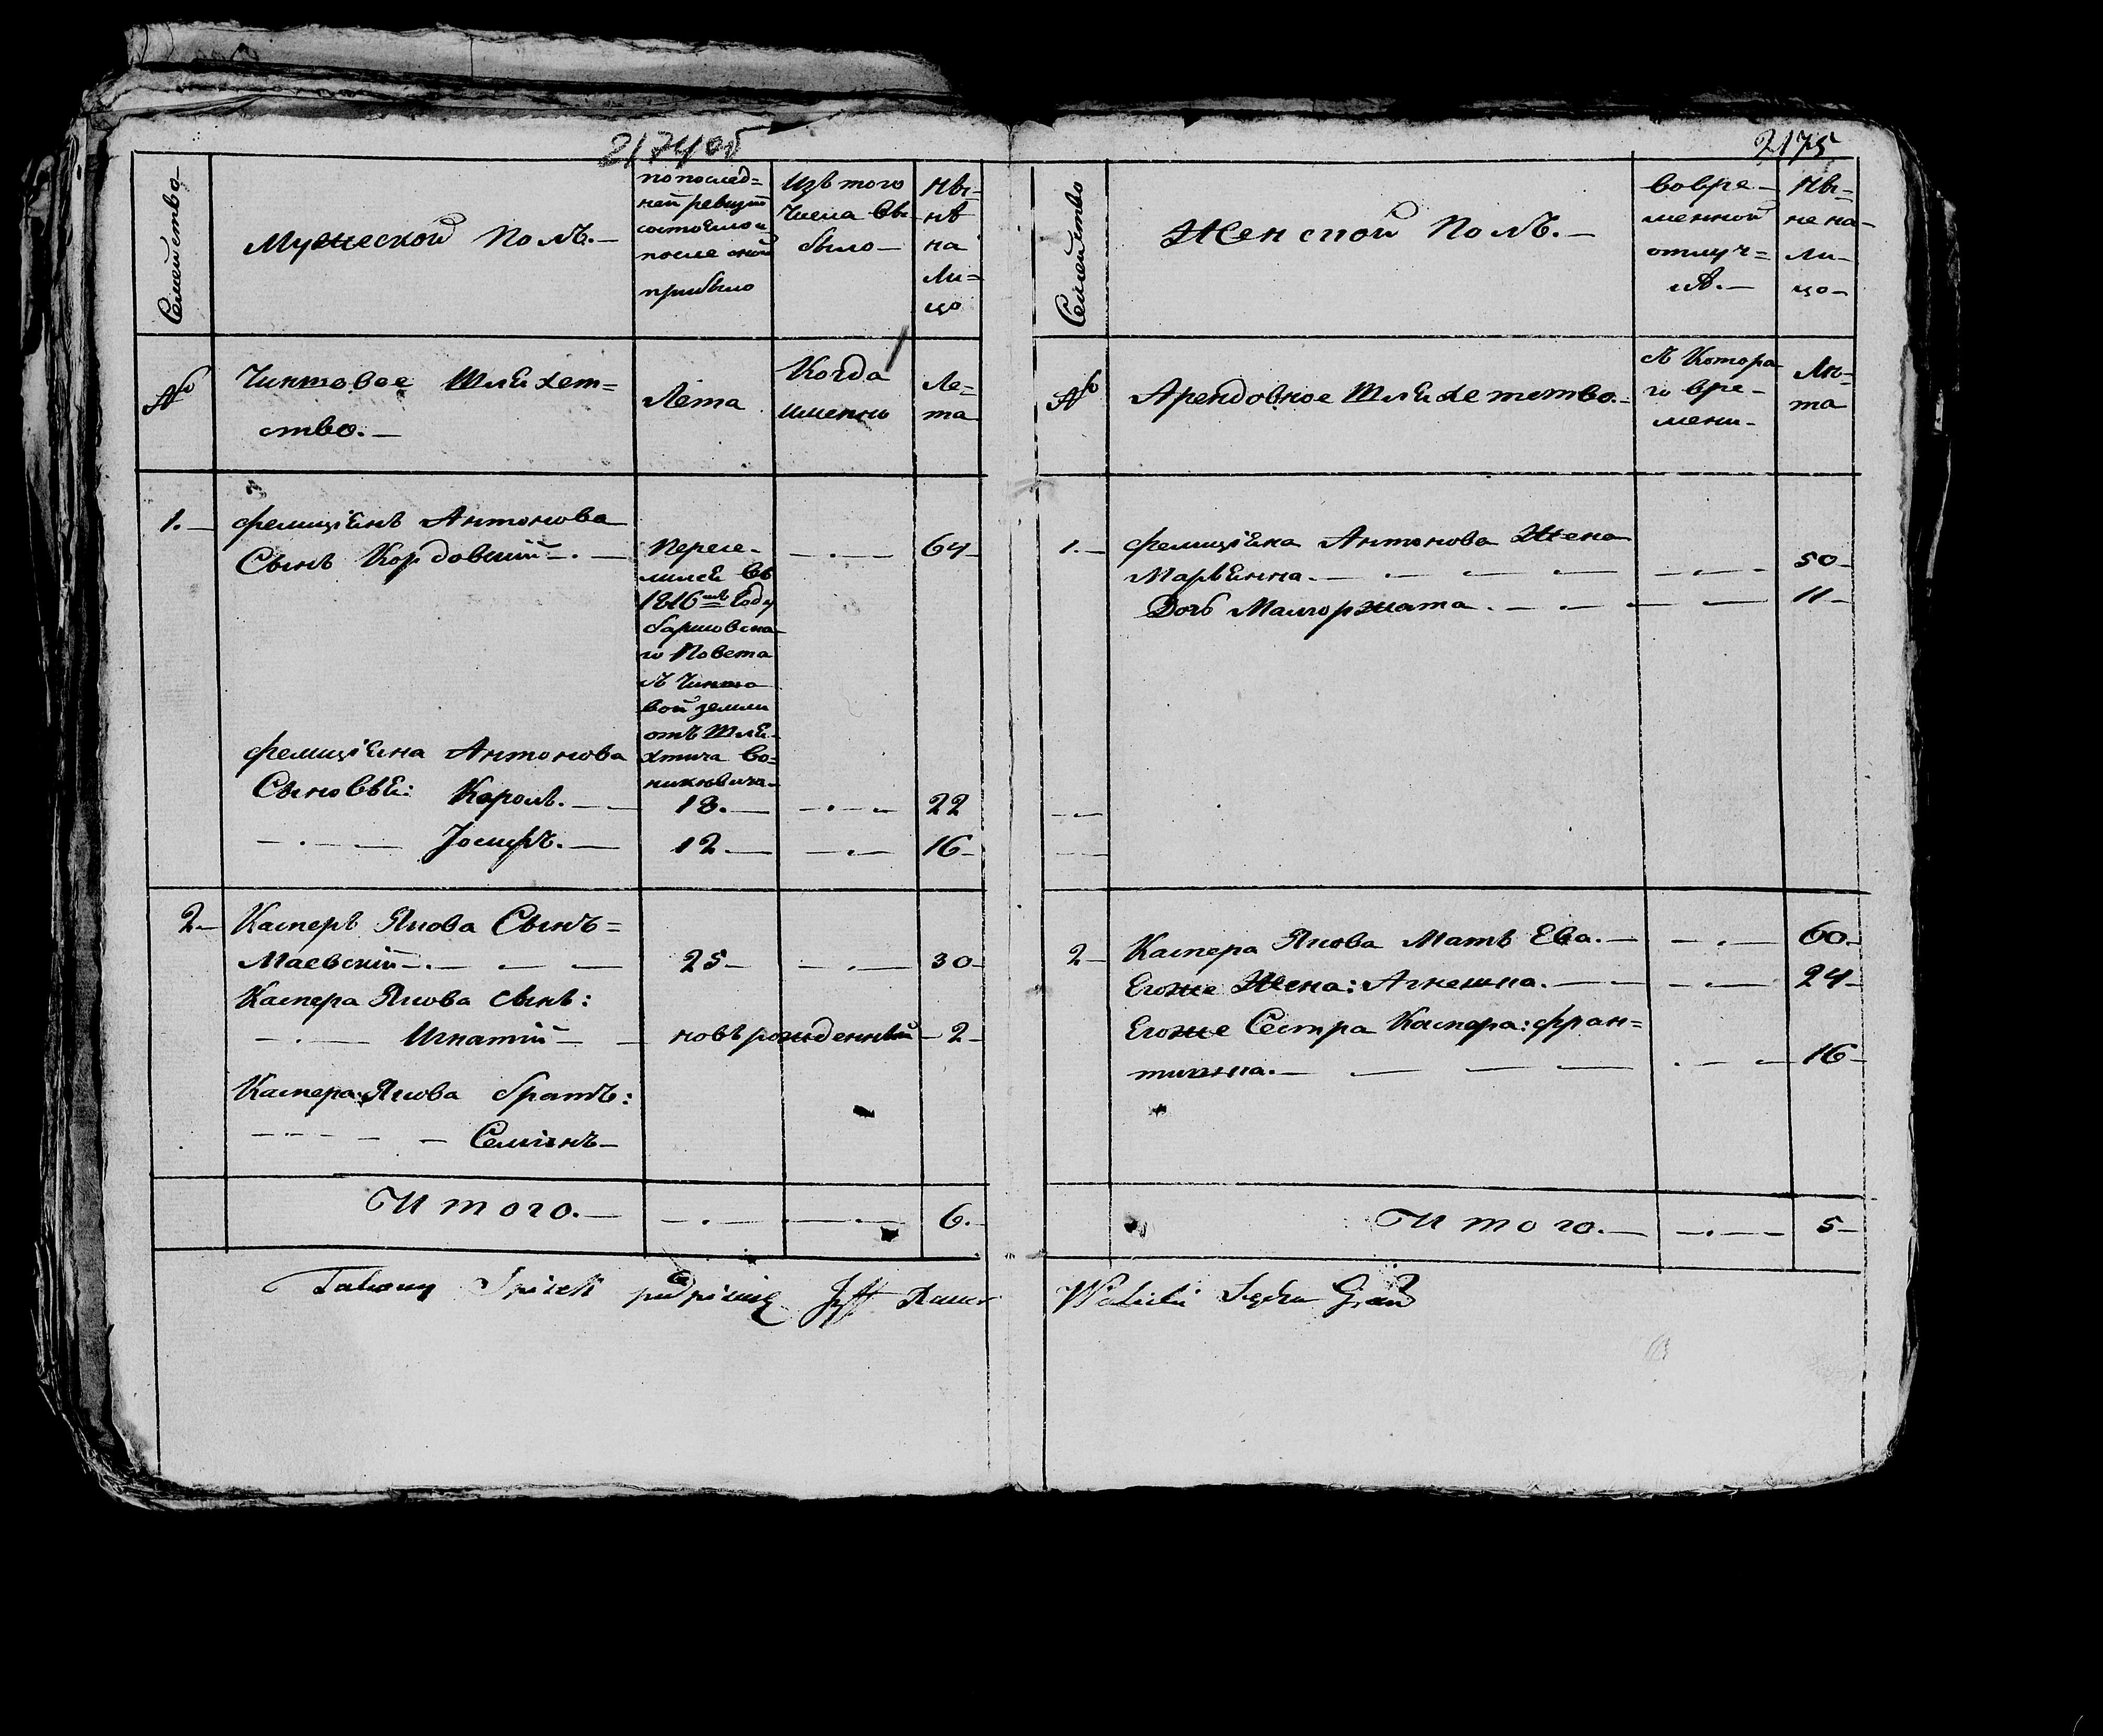 2174об
Семейство
Мужеской Полъ.
по послед=
ней ревизіи
состояло и
после оной
прибыло
Изъ того
Числа вы
было
Ны=
нѣ
на
Ли=
цо
№
Чиншовое Шляхет=
ство.
Лета
Когда
именно
Ле-
та
1. Фелиціянъ Антонова
Сынъ Кордовшій 64
Пересе-
1816 году
го Повета
съ Чиншо
вой земли
отъ Шля-
хтича Во=
Фелиціяна Антонова
Сыновья: Кароль. 18. 22
Іосифъ. 12 16
2 Касперъ Янова Сынъ=
Маевскій 25 30
Каспера Янова сынъ:
Игнатій новъ рожденный 2
Каспера Янова братъ:
Семіянъ
Итого. 6.
2175
Семейство
Женской Полъ.
во вре-
менной
отлуч=
кѣ.
Ны=
не на-
ли-
цо-
№
Арендовное Шляхетство.
съ Котора
го вре-
мени-
Лѣ-
та
1. Фелиціяна Антонова Жена
Марьянна. 50
Дочь Малгоржата. 11
2 Каспера Янова Мать Ева. 60
Егоже Жена: Агнешка. 24
Егоже Сестра Каспера: Фран=
тишка. 16
Итого. 5
Takowy Spisek podpisuię